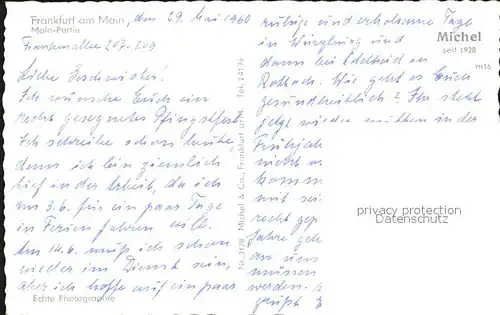 Frankfurt am Main, den 29. Mai 1960
Main-Partie
Frankenallee 207-209
Liebe Geschwister!
Ich wünsche Euch ein
recht gesegnetes Pfingstfest.
Ich schreibe schon heute,
denn ich bin ziemlich
tief in der Arbeit, da ich
am 3.6. für ein paar Tage
in Ferien fahren will.
Am 14.6. muß ich schon
wieder im Dienst sein,
aber ich hoffe auf ein paar
Echte Photographie
Nr. 2178 Michel & Co., Frankfurt a. M. Tel. 24176
ruhige und erholsame Tage
in Würzburg und
dann bei Edelheid in
Rottach. Wie geht es Euch
gesundheitlich? Ihr steht
jetzt wieder mitten in der
Frühjah
nicht
komm
mit sei
recht gep
Jahre geh
an uns
müssen
werden.
grüßt
Michel
seit 1928
m16
privacy protection
Datenschutz